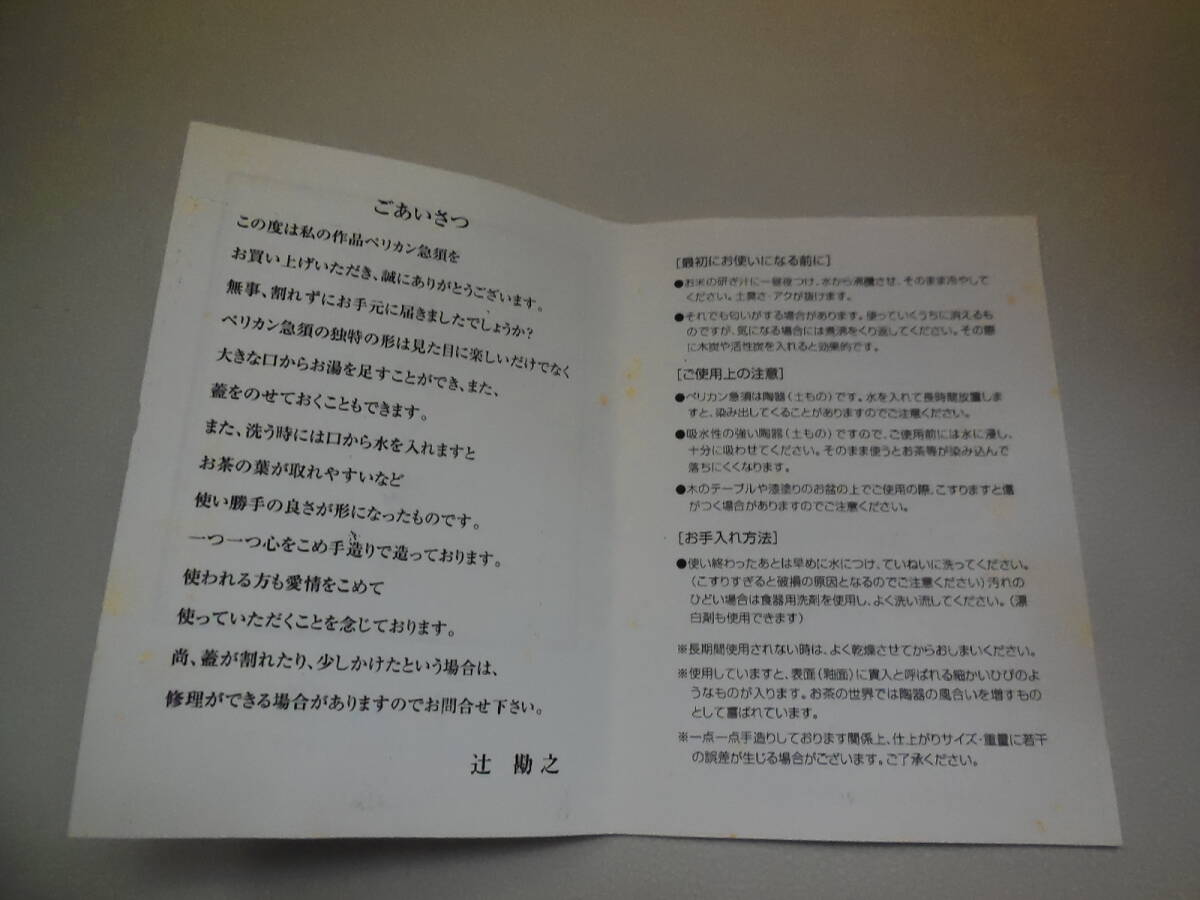 ごあいさつ
この度は私の作品ペリカン急須を
お買い上げいただき、誠にありがとうございます。
無事、割れずにお手元に届きましたでしょうか?
ペリカン急須の独特の形は見た目に楽しいだけでなく
大きな口からお湯を足すことができ、また、
蓋をのせておくこともできます。
また、洗う時には口から水を入れますと
お茶の葉が取れやすいなど
使い勝手の良さが形になったものです。
一つ一つ心をこめ手造りで造っております。
使われる方も愛情をこめて
使っていただくことを念じております。
尚、蓋が割れたり、少しかけたという場合は、
修理ができる場合がありますのでお問合せ下さい。
辻 勘之
[最初にお使いになる前に]
●お米の研ぎ汁に一昼夜つけ、水から沸騰させ、そのまま冷やして
ください。土臭さ・アクが抜けます。
●それでも匂いがする場合があります。使っていくうちに消えるも
のですが、気になる場合には煮沸をくり返してください。その際
に木炭や活性炭を入れると効果的です。
[ご使用上の注意]
●ペリカン急須は陶器(土もの)です。水を入れて長時間放置しま
すと、染み出してくることがありますのでご注意ください。
●吸水性の強い陶器(土もの)ですので、ご使用前には水に浸し、
十分に吸わせてください。そのまま使うとお茶等が染み込んで
落ちにくくなります。
●木のテーブルや漆塗りのお盆の上でご使用の際、こすりますと傷
がつく場合がありますのでご注意ください。
[お手入れ方法]
●使い終わったあとは早めに水につけ、ていねいに洗ってください。
(こすりすぎると破損の原因となるのでご注意ください)汚れの
ひどい場合は食器用洗剤を使用し、よく洗い流してください。(漂
白剤も使用できます)
※長期間使用されない時は、よく乾燥させてからおしまいください。
※使用していますと、表面(釉面)に貫入と呼ばれる細かいひびのよ
うなものが入ります。お茶の世界では陶器の風合いを増すもの
として喜ばれています。
※一点一点手造りしております関係上、仕上がりサイズ・重量に若干
の誤差が生じる場合がございます。ご了承ください。